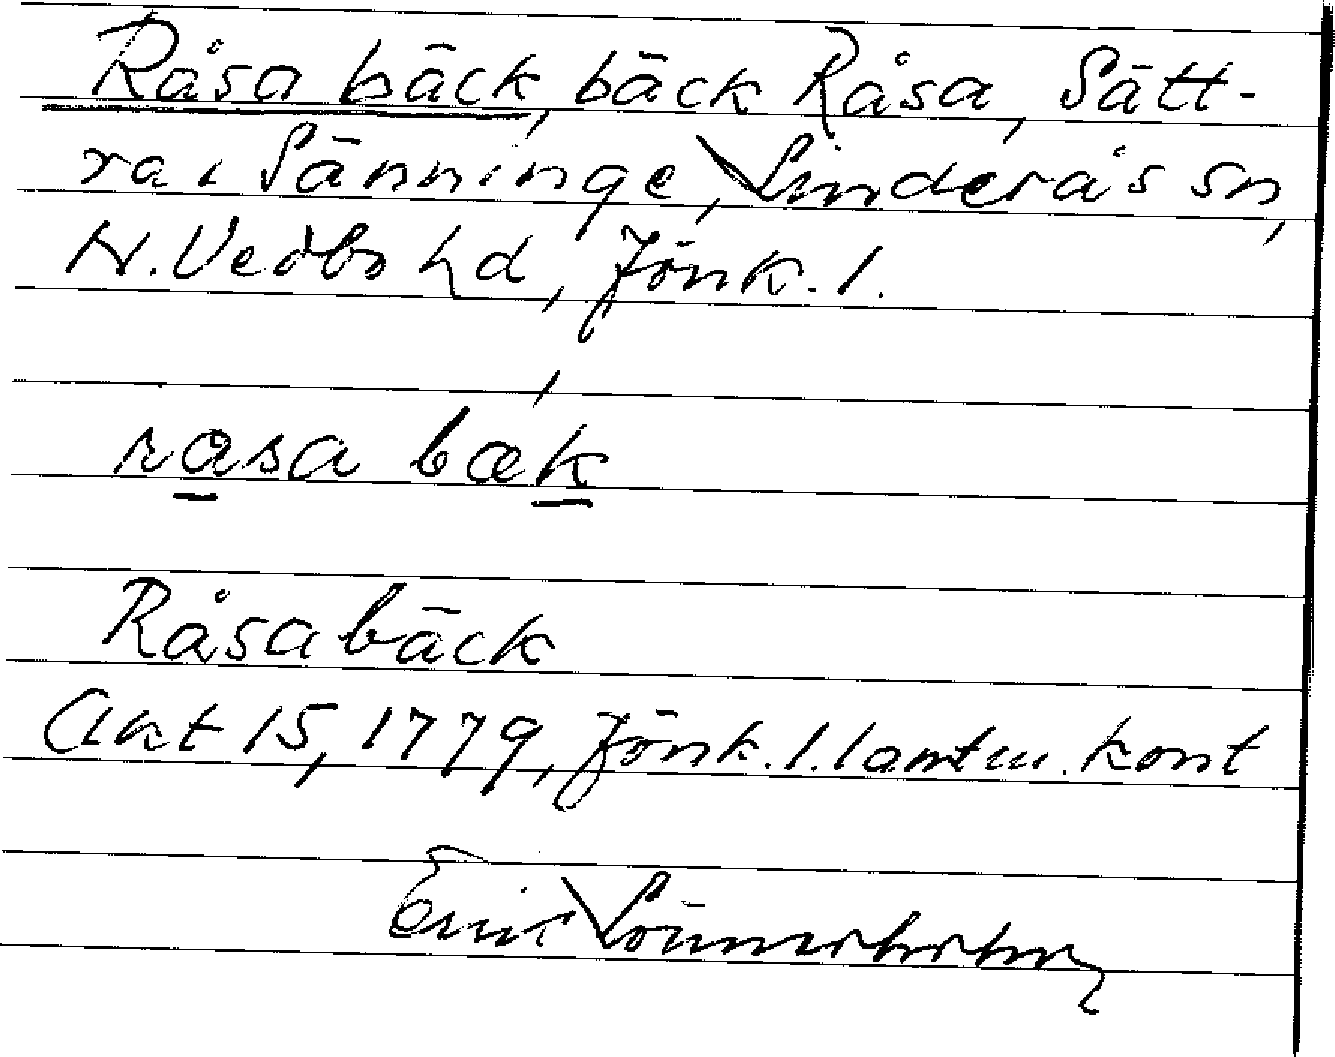 Råsa bäck, bäck Råsa, Sätt-
ra i Sänninge, Linderås sn,
N. Vedbo hd, Jönk. l.
råsa bæk
Råsabäck
Akt 15, 1779, Jönk. l. lantm. kont
Eric